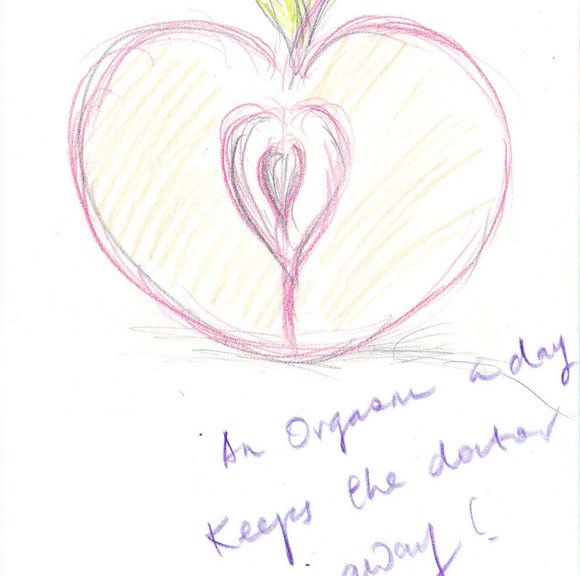 An Orgasm a day
Keeps the doctor
away!